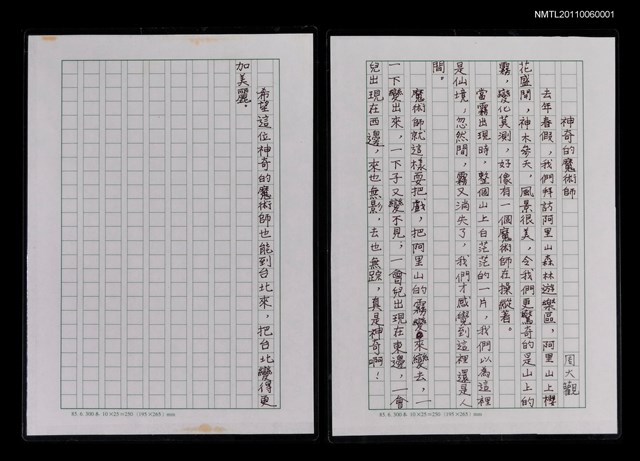 NMTL20110060001
神奇的魔術師
周大觀
去年春假，我們拜訪阿里山森林遊樂區，阿里山上櫻
花盛開，神木參天，風景很美，令我們更驚奇的是山上的
霧，變化莫測，好像有一個魔術師在操縱著。
當霧出現時，整個山上白茫茫的一片，我們以為這裡
是仙境，忽然間，霧又消失了，我們才感覺到這裡還是人
間。
魔術師就這樣耍把戲，把阿里山的霧變來變去，一
一下變出來，一下子又變不見，一會兒出現在東邊，一會
兒出現在西邊，來也無影，去也無蹤，真是神奇啊！
85. 6. 300本 10×25＝250 (195×265) mm
希望這位神奇的魔術師也能到台北來，把台北變得更
加美麗。
85. 6. 300本 10×25＝250 (195×265) mm